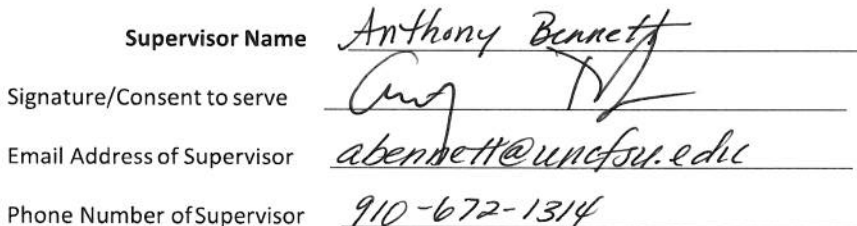 Supervisor Name Anthony Bennett
Signature/Consent to serve
Email Address of Supervisor abennett@uncfsu.edu
Phone Number of Supervisor 910-672-1314